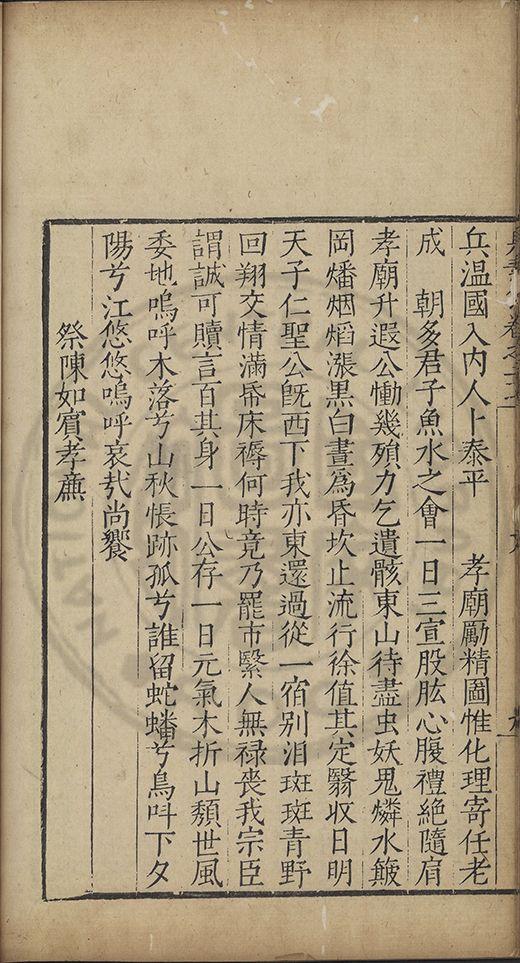 兵温國入內人卜泰平　孝廟勵精圖惟化理寄任老
成　朝多君子魚水之會一日三宣股肱心腹禮絶隨肩
孝廟升遐公慟幾殞力乞遺骸東山待盡虫妖鬼燐水簸
岡燔烟熖漲黑白晝爲昏坎止流行徐值其定翳収日明
天子仁聖公旣西下我亦東還過從一宿别泪斑斑青野
回翔交情滿帋床褥何時竟乃罷市繄人無禄喪我宗臣
謂誠可贖言百其身一日公存一日元氣木折山頽世風
委地嗚呼木落兮山秋悵跡孤兮誰留蛇蟠兮鳥呌下夕
陽兮江悠悠嗚呼哀㢤尚饗
祭陳如賓孝亷